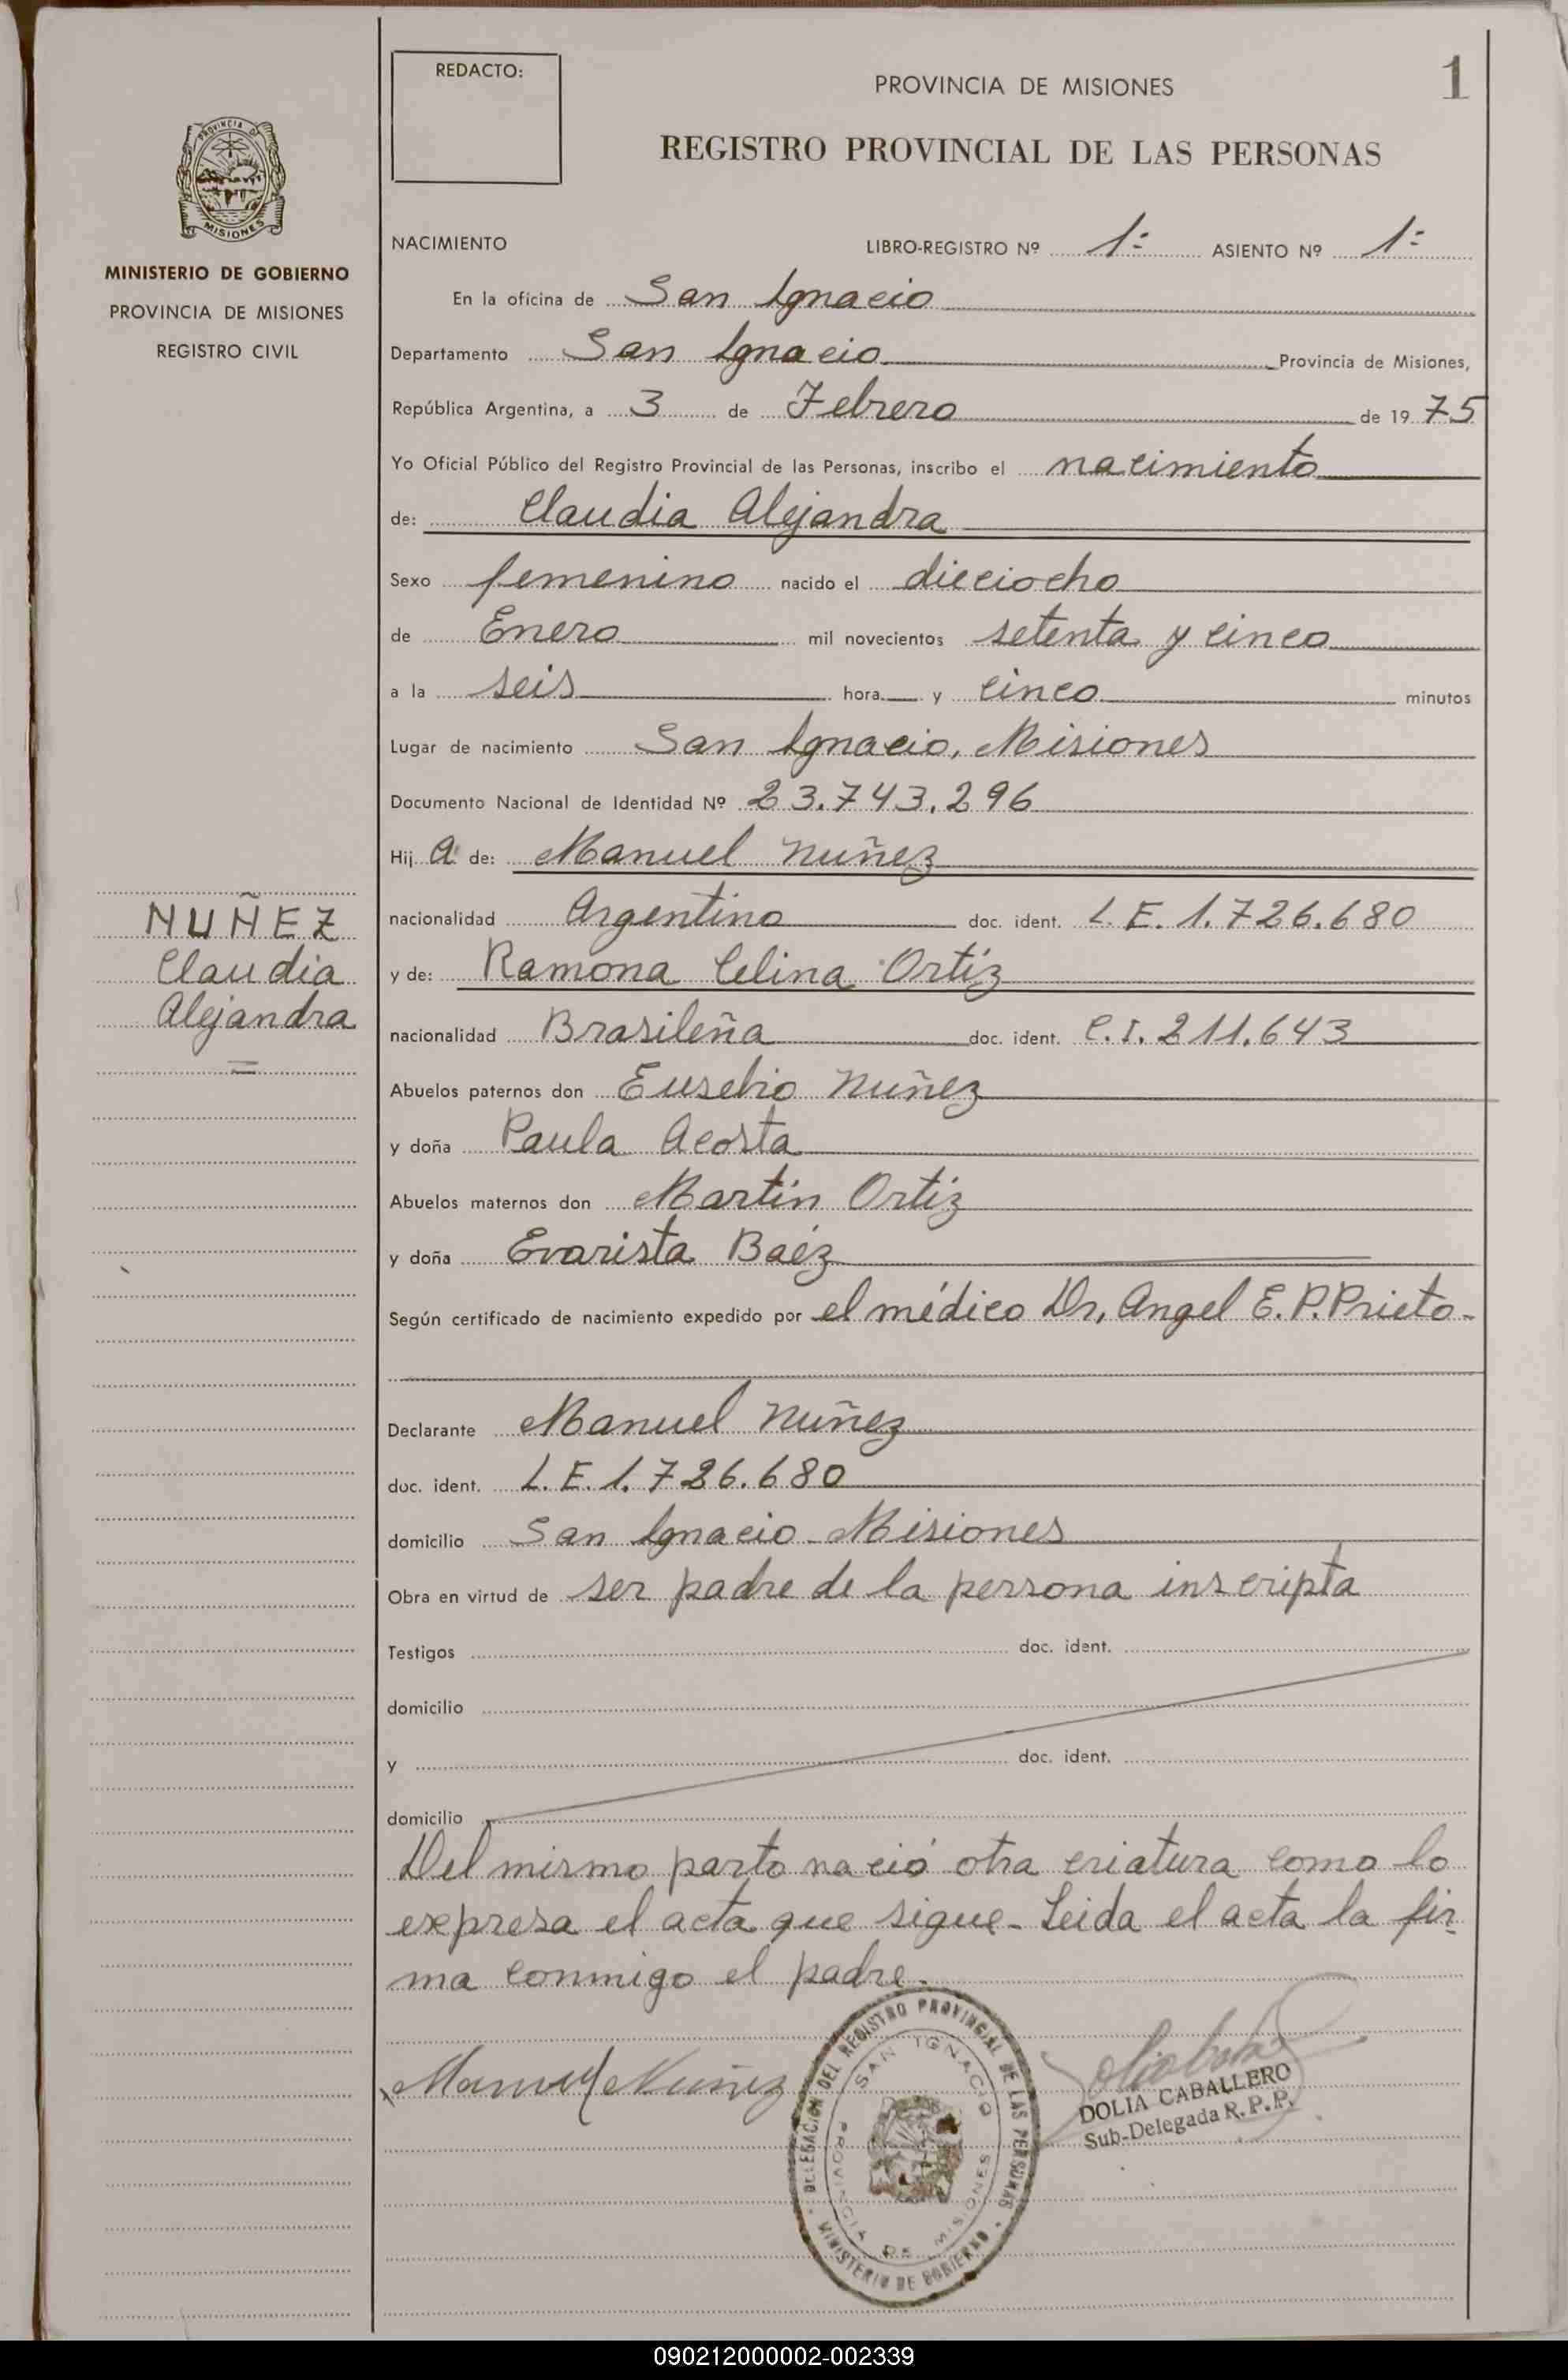 REDACTO:
PROVINCIA DE MISIONES
1
REGISTRO PROVINCIAL DE LAS PERSONAS
PROVINCIA DE
MISIONES
MINISTERIO DE GOBIERNO
PROVINCIA DE MISIONES
REGISTRO CIVIL
NACIMIENTO LIBRO-REGISTRO Nº 1= ASIENTO Nº 1=
En la oficina de San Ignacio
Departamento San Ignacio Provincia de Misiones,
República Argentina, a 3 de Febrero de 1975
Yo Oficial Público del Registro Provincial de las Personas, inscribo el nacimiento
de: Claudia Alejandra
Sexo femenino nacido el dieciocho
de Enero mil novecientos setenta y cinco
a la seis hora y cinco minutos
Lugar de nacimiento San Ignacio, Misiones
Documento Nacional de Identidad Nº 23.743.296
Hija de: Manuel Nuñez
nacionalidad Argentino doc. ident. L.E. 1.726.680
y de: Ramona Celina Ortiz
nacionalidad Brasileña doc. ident. C.I. 211.643
Abuelos paternos don Eusebio Nuñez
y doña Paula Acosta
Abuelos maternos don Martín Ortiz
y doña Evarista Baéz
Según certificado de nacimiento expedido por el médico Dr, Angel E. P. Prieto-
Declarante Manuel Nuñez
doc. ident. L.E. 1.726.680
domicilio San Ignacio-Misiones
Obra en virtud de ser padre de la persona inscripta
Testigos doc. ident.
domicilio
y doc. ident.
domicilio
Del mismo parto nació otra criatura como lo
expresa el acta que sigue- Leida el acta la fir-
ma conmigo el padre.
NUÑEZ
Claudia
Alejandra
=
Manuel Nuñez
DELEGACIÓN DEL REGISTRO PROVINCIAL DE LAS PERSONAS
SAN IGNACIO
PROVINCIA DE MISIONES
MINISTERIO DE GOBIERNO
DOLIA CABALLERO
Sub-Delegada R.P.P.
090212000002-002339